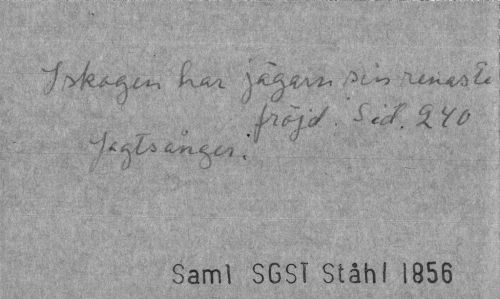 I skogen har jägarn sin renaste
fröjd. Sid. 240
Jagtsånger.
Saml SGST Ståhl 1856